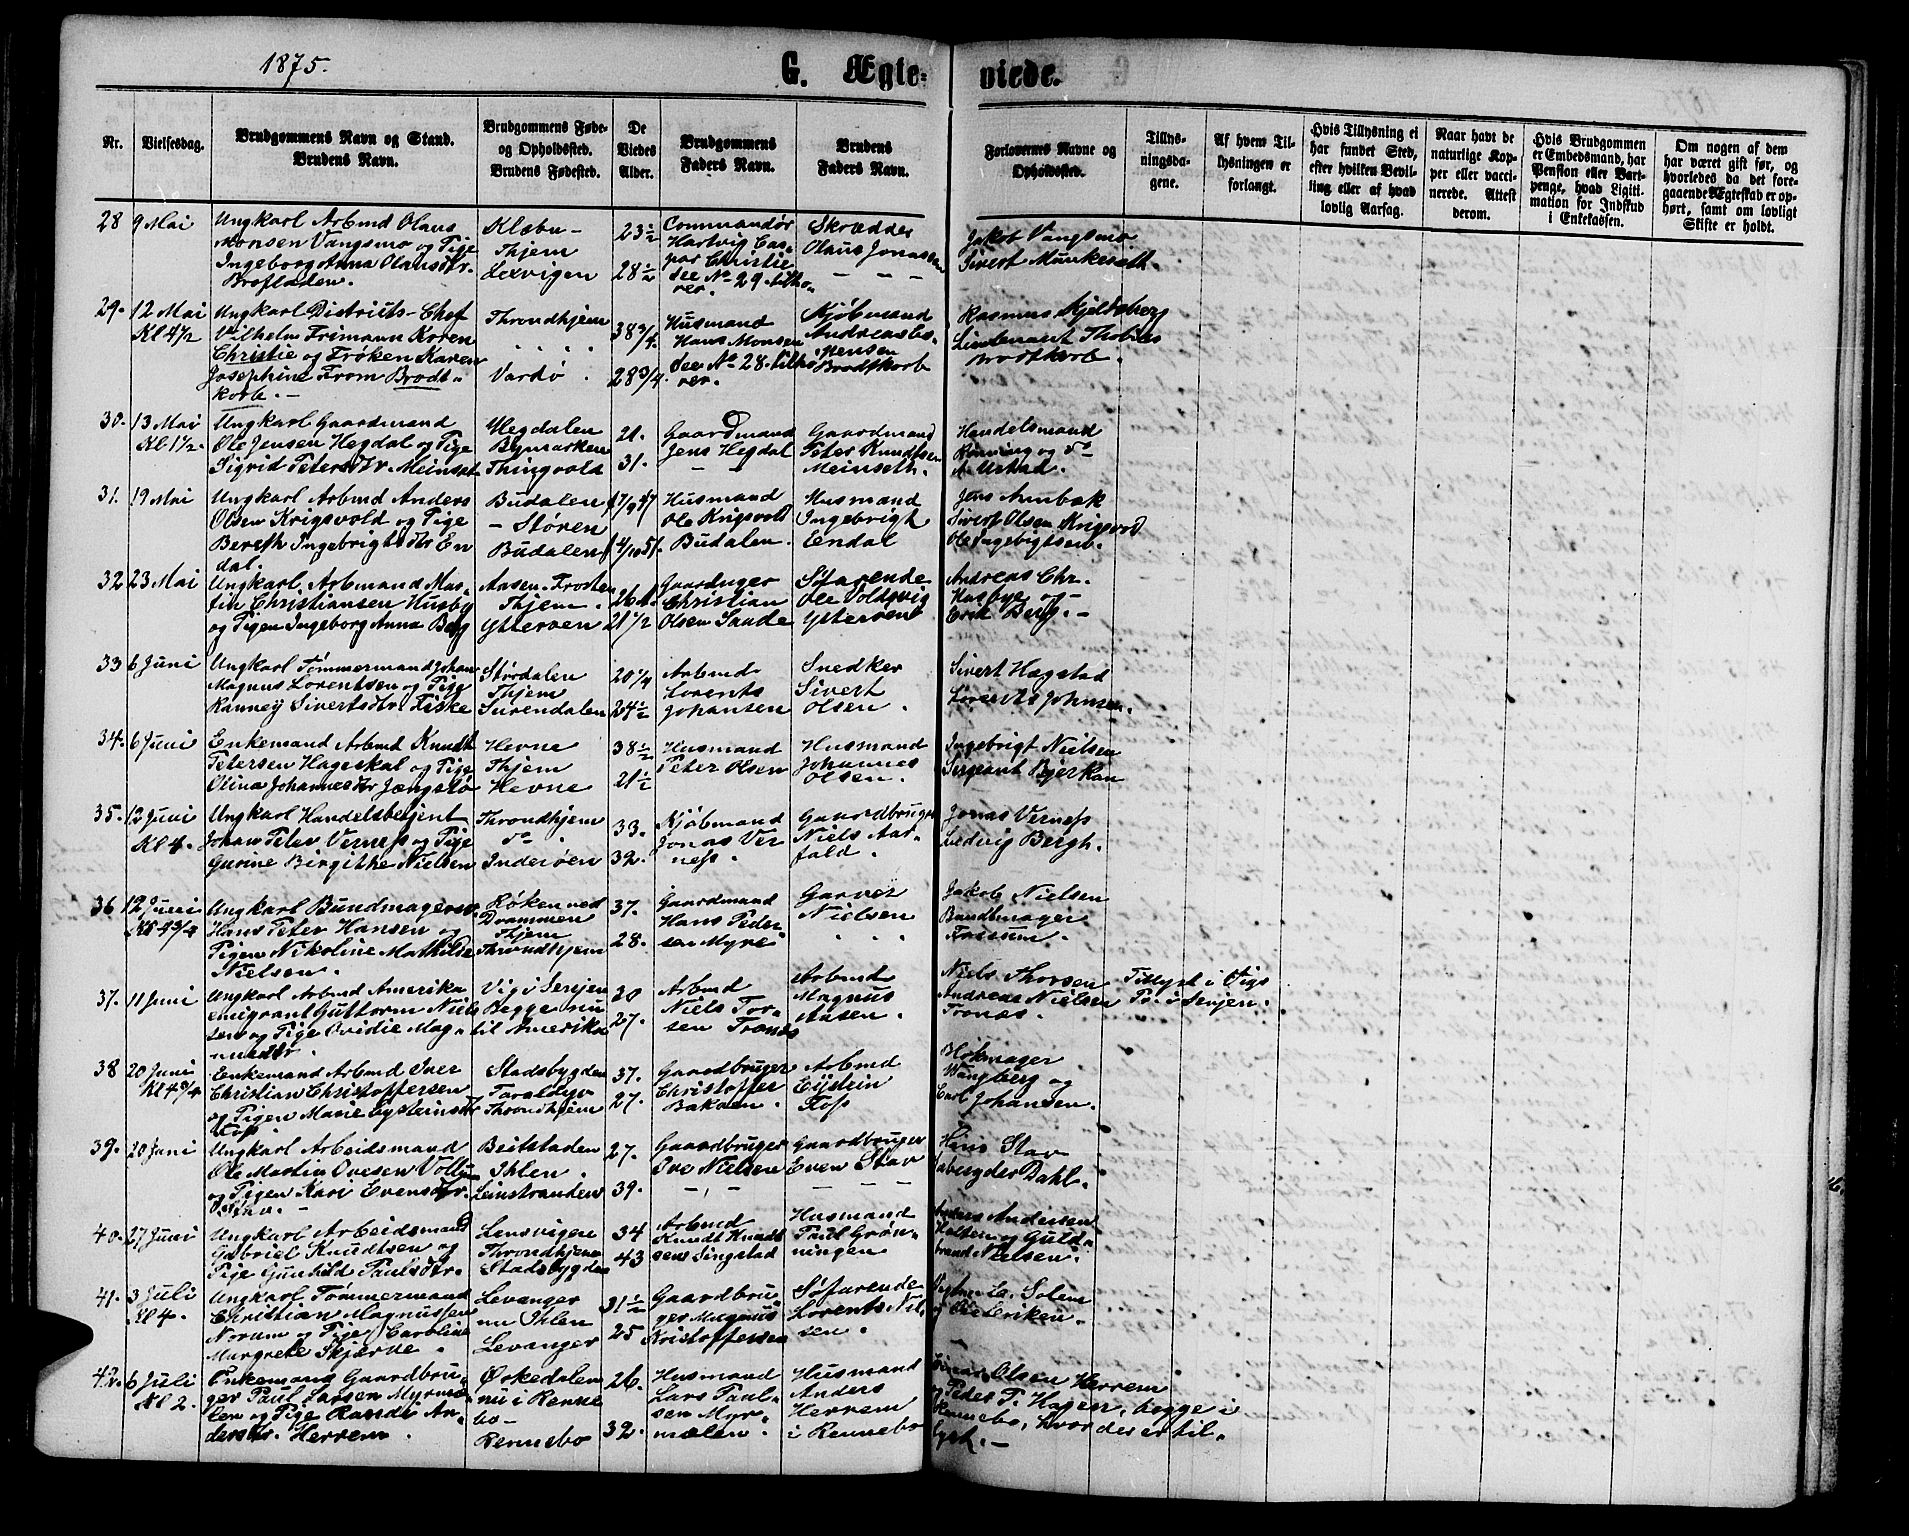 1875.
G. Ægte-
viede.
Nr.
Vielsesdag.
Brudgommens Navn og Stand.
Brudens Navn.
Brudgommens Føde-
og Opholdssted.
Brudens Fødested.
De
Viedes
Alder.
Brudgommens
Faders Navn.
Brudens
Faders Navn.
Forlovernes Navne og
Opholdssted.
Tillys-
ningsda-
gene.
Af hvem Til-
lysningen er
forlangt.
Hvis Tillysning ei
har fundet Sted,
efter hvilken Bevil-
ling eller af hvad
lovlig Aarsag.
Naar havt de
naturlige Kop-
per eller vacci-
nerede. Attest
derom.
Hvis Brudgommen
er Embedsmand, har
Pension eller Vart-
penge, hvad Ligiti-
mation for Indskud
i Enkekassen.
Om nogen af dem
har været gift før, og
hvorledes da det fore-
gaaende Ægteskab er op-
hørt, samt om lovligt
Skifte er holdt.
28 9 Mai
Ungkarl Arbmd Olaus
Monsen Vangsmo og Pige
Ingeborg Anna Olausdtr.
Brofladen.
Klæbu -
Thjem
Lexvigen
23 1/2
28 1/2
Commandør
Hartvig Cas-
par Christie
see No 29 tilhø-
rer.
Skrædder
Olaus Jonassen
Jakob Vangsmo
Sivert Munkesæth.
29. 12 Mai
Kl 4 1/2
Ungkarl Districts-Chef
Vilhelm Frimann Koren
Christie og Frøken Karen
Josephine From Brodt-
korb. -
Throndhjem
Vardø
38 3/4.
28 3/4.
Husmand
Hans Monsen
see No 28 tilhø
rer.
Kjøbmand
Andreas Es-
pensen
Brodtkorb
Rasmus Kjeldsberg
Lieutenant Thobias
Brodtkorb.
30. 13 Mai
Kl 1 1/2.
Ungkarl Gaardmand
Ole Jensen Hegdal og Pige
Sigrid Petersdtr. Meinset
Hegdalen
Bymarken
Thingvold
21.
31.
Gaardmand
Jens Hegdal
Gaardmand
Peter Knudtsen
Meinseth.
Handelsmand
Rønning og do
A. Urstad.
31. 19 Mai
Ungkarl Arbmd Anders
Olsen Krigsvold og Pige
Bereth Ingebrigtsdtr En
dal.
Budalen
- Støren
Budalen
17/9 47
14/10 51.
Husmand
Ole Krigsvold
Budalen.
Husmand
Ingebrigt
Endal
Jens Aunbæk
Sivert Olsen Krigsvold
Ole Ingebrigtsen.
32 23 Mai
Ungkarl Arbmand Mar-
tin Christiansen Husby
og Pigen Ingeborg Anna Berg
Aasen. Frosten
Thjem.
Ytterøen
26 1/4.
21 1/2
Gaardbruger
Christian
Olsen Sande
Søfarende
Ole Voldsvig
Ytterøen
Andreas Chr.
Husbye og -
Erik Berg. -
33 6 Juni
Ungkarl Tømmermand Johan
Magnus Lorentsen og Pige
Ranney Sivertsdtr Fiske
Størdalen
Thjem
Surendalen
20 1/4
24 1/2
Arbmd
Lorents
Johansen
Snedker
Sivert
Olsen.
Sivert Hagstad
Lorents Johnsen.
34. 6 Juni
Enkemand Arbmd Knudt
Petersen Hageskal og Pige
Olina Johannesdtr Jængstø
Hevne
Thjem
Hevne
38 1/2
21 1/2
Husmand
Peter Olsen
Husmand
Johannes
Olsen.
Ingebrigt Nielsen
Sergeant Bjerkan
35. 12 Juni
Kl 4.
Ungkarl Handelsbetjent
Johan Peter Verness og Pige
Gurine Birgithe Nielsen
Throndhjem
do.
Inderøen
33.
32.
Kjøbmand
Jonas Ver
ness.
Gaardbruger
Niels Aar-
fald.
Jonas Verness
Ludvig Bergh.
36 12 Juni
Kl 4 3/4
Ungkarl Bundmagersv.
Hans Peter Hansen og
Pigen Nikoline Mathilde
Nielsen.
Røken ved
Drammen
Thjem
Throndhjem
37.
28.
Gaardmand
Hans Peder-
sen Myre
Garver
Nielsen
Jakob Nielsen
Bundtmager
Fossum.
37. 11 Juni
Ungkarl Arbmd Amerika
emigrant Guttorm Niel-
sen og Pige Ovidie Mag-
nusdtr.
Vig i Senjen
Begge nu
til Amerika
20
27.
Arbmd
Niels Tor-
sen Fronæs
Arbmd
Magnus
Aasen.
Niels Thorsen
Andreas Nielsen
Fronæs.
Tillyst i Vigs
Pr. i Senjen.
38 20 Juni
Kl 4 3/4
Enkemand Arbmd Iver
Christian Christoffersen
og Pigen Marie Eysteinsdtr
Foss.
Stadsbygden
Throndhjem
37.
27.
Gaardbruger
Christoffer
Bakøen.
Arbmd
Eystein
Foss
Blokmager
Wangberg og
Carl Johansen.
39. 20 Juni
Ungkarl Arbeidsmand
Ole Martin Ovesen Vollu
og Pigen Kari Evensdtr.
Stav. -
Beitstaden
Ihlen.
Leinstranden
27.
39.
Gaardbruger
Ove Nielsen
Gaardbruger
Even Stav
Hans Stav
Dahl.
40. 27 Juni
Ungkarl Arbeidsmand
Gabriel Knudtsen og
Pige Gunhild Paulsdtr.
Lensvigen
Throndhjem
Stadsbygden
34
43
Arbmd
Knudt Knudt
sens Singstad
Husmand
Paul Grøn-
ningen
Anders Andersen
Holten og Guld-
brand Nielsen.
41. 3 Juli
Kl 4.
Ungkarl Tømmermand
Christian Magnussen
Norum og Pige Caroline
Margrete Skjærve.
Levanger
nu Ihlen
Levanger
31 1/2
25
Gaardbru-
ger Magnus
Kristoffersen
Søfarende
Lorents Niel-
sen.
Solem
42. 6 Juli
Kl 2.
Enkemand Gaardbru-
ger Paul Larsen Myrmæ-
len og Pige Randi An-
dersdtr. Herrem.
Ørkedalen
nu i Renne
bo -
Rennebo
26.
32.
Husmand
Lars Paul-
sen Myr-
mælen.
Husmand
Anders
Herrem
i Rennebo
Einar Olsen Herrem
og Peder T. Hagen, begge i
Rennebo, hvor der er til-
lyst. -